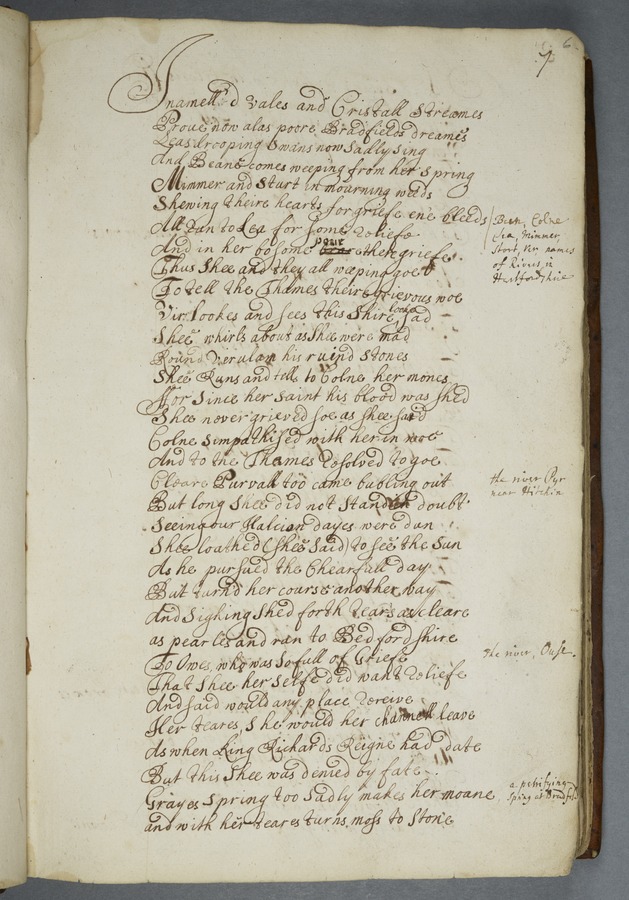 6
7
Inamell'd vales and Cristall Streames
Prove now alas poore Bradfields dreames
Leas drooping Swans now Sadly sing
And Beane comes weeping from her Spring
Mimmer and Sturt in mourning weeds
Shewing theire hearts for griefe ene bleeds
All Run to Lea for Some Reliefe
And in her bosome pour their griefe
Thus Shee and they all weeping goe
To tell the Thames their grievous woe
Vir lookes and sees this Shire looke sad
Shee whirls about as Shee were mad
Round Verulam his ruind Stones
Shee Runs and tells to Colne her mones
For Since her Saint his blood was shed
Shee never grieved soe as shee said
Colne Simpathised with her in woe
And to the Thames resolved to goe
Cleare Purvall too came bubling out
But long Shee did not Stand in doubt
Seeing our Halcion dayes were dun
Shee loathed (shee Said) to see the Sun
As he pursued the Chearfull day
But turn'd her course another way
And Sighing Shed forth tears as cleare
as pearles and ran to Bedfordshire
To Owes, who was So full of Griefe
That Shee her Selfe did want Reliefe
And said would any place Receive
Her teares, She would her channell leave
As when King Richards Reigne had date
But this Shee was denied by fate
Grayes Spring too Sadly makes her moane
and with her teares turns moss to Stone
Bean, Colne
Lea, Mimmer,
Stort, Ver names
of Rivers in
Hertfordshire
the river Pyr
near Hitchin
the river, Ouse.
a petrifying
Spring at Bradf.